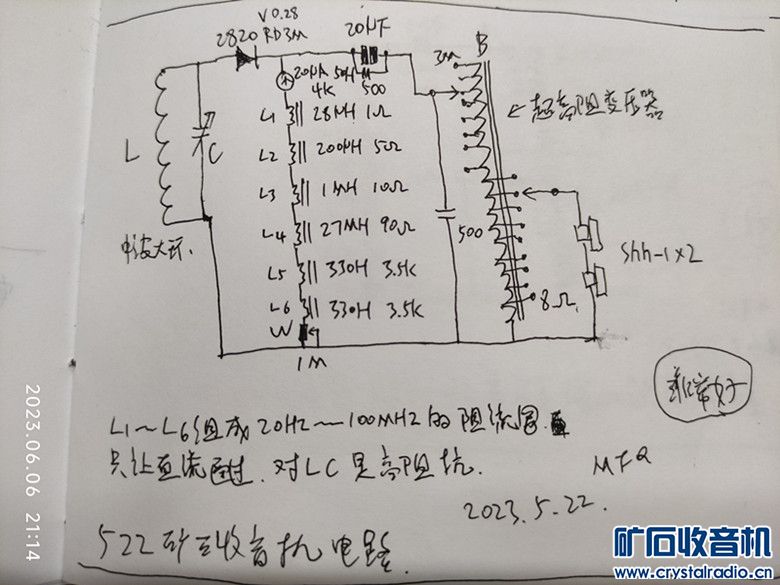 V 0.28
2820 RD3M
20μF
3M
B
20μA 50H M
4K 500
超高阻变压器
L
C
L1 28MH 1Ω
L2 200μH 5Ω
L3 1MH 10Ω
L4 27MH 90Ω
L5 330H 3.5K
L6 330H 3.5K
W
1M
中波大环.
500
8Ω
Shh-1×2
非常好
L1～L6组成20HZ～100MHZ的阻流圈.
只让直流通过.对LC呈高阻抗.
MFQ
2023.5.22.
522矿石收音机电路.
2023.06.06 21:14
矿石收音机
www.crystalradio.cn